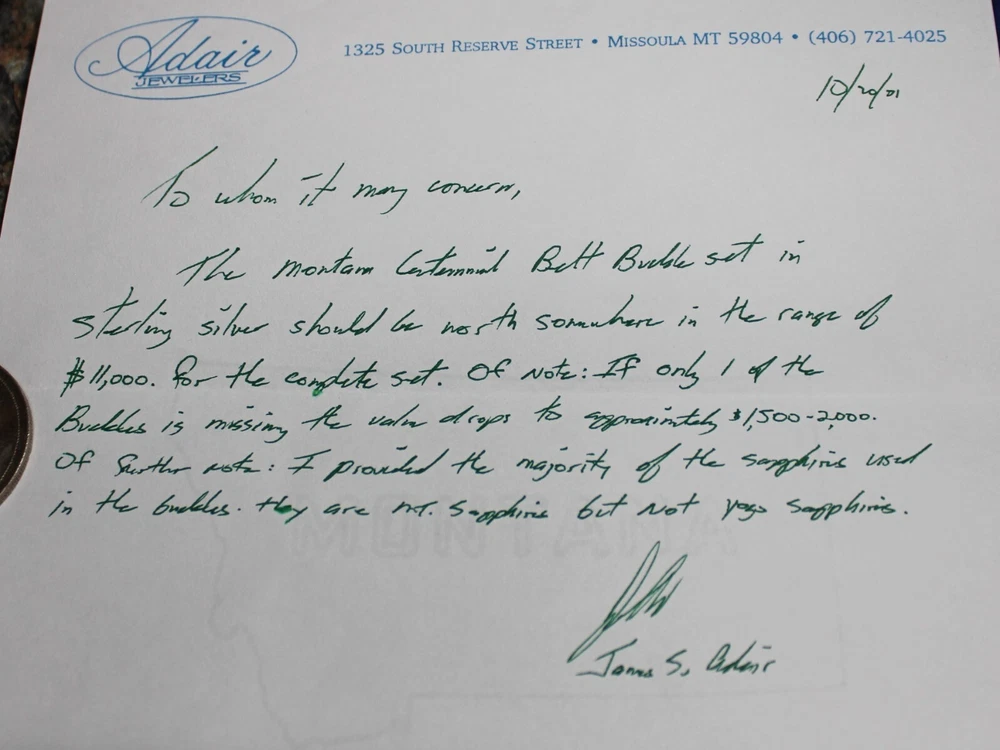 Adair
JEWELERS
1325 SOUTH RESERVE STREET • MISSOULA MT 59804 • (406) 721-4025
10/20/01
To whom it may concern,
The Montana Centennial Belt Buckle set in
sterling silver should be worth somewhere in the range of
$11,000. for the complete set. Of Note: If only 1 of the
Buckles is missing the value drops to approximately $1,500-2,000.
Of further note: I provided the majority of the sapphires used
in the buckles. they are MT. Sapphires but not yogo sapphires.
MONTANA
James S. Adair